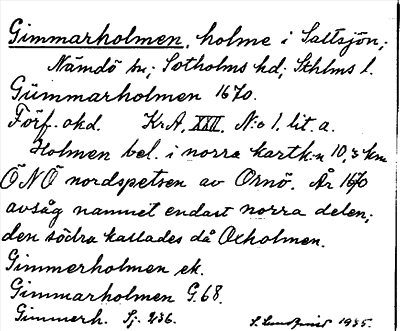 Gimmarholmen, holme i Saltsjön;
Nämdö sn; Sotholms hd; Sthlms l.
Gümmarholmen 1670.
Förf. okd. KrA, XXII. N:o 1. lit. a.
Holmen bel. i norra kartk:n 10,3 km
ÖNÖ nordspetsen av Ornö. År 1670
avsåg namnet endast norra delen;
den södra kallades då Oxholmen.
Gimmerholmen ek.
Gimmarholmen G.68.
Gimmerh. Sj. 236. S. Lundqvist 1935.